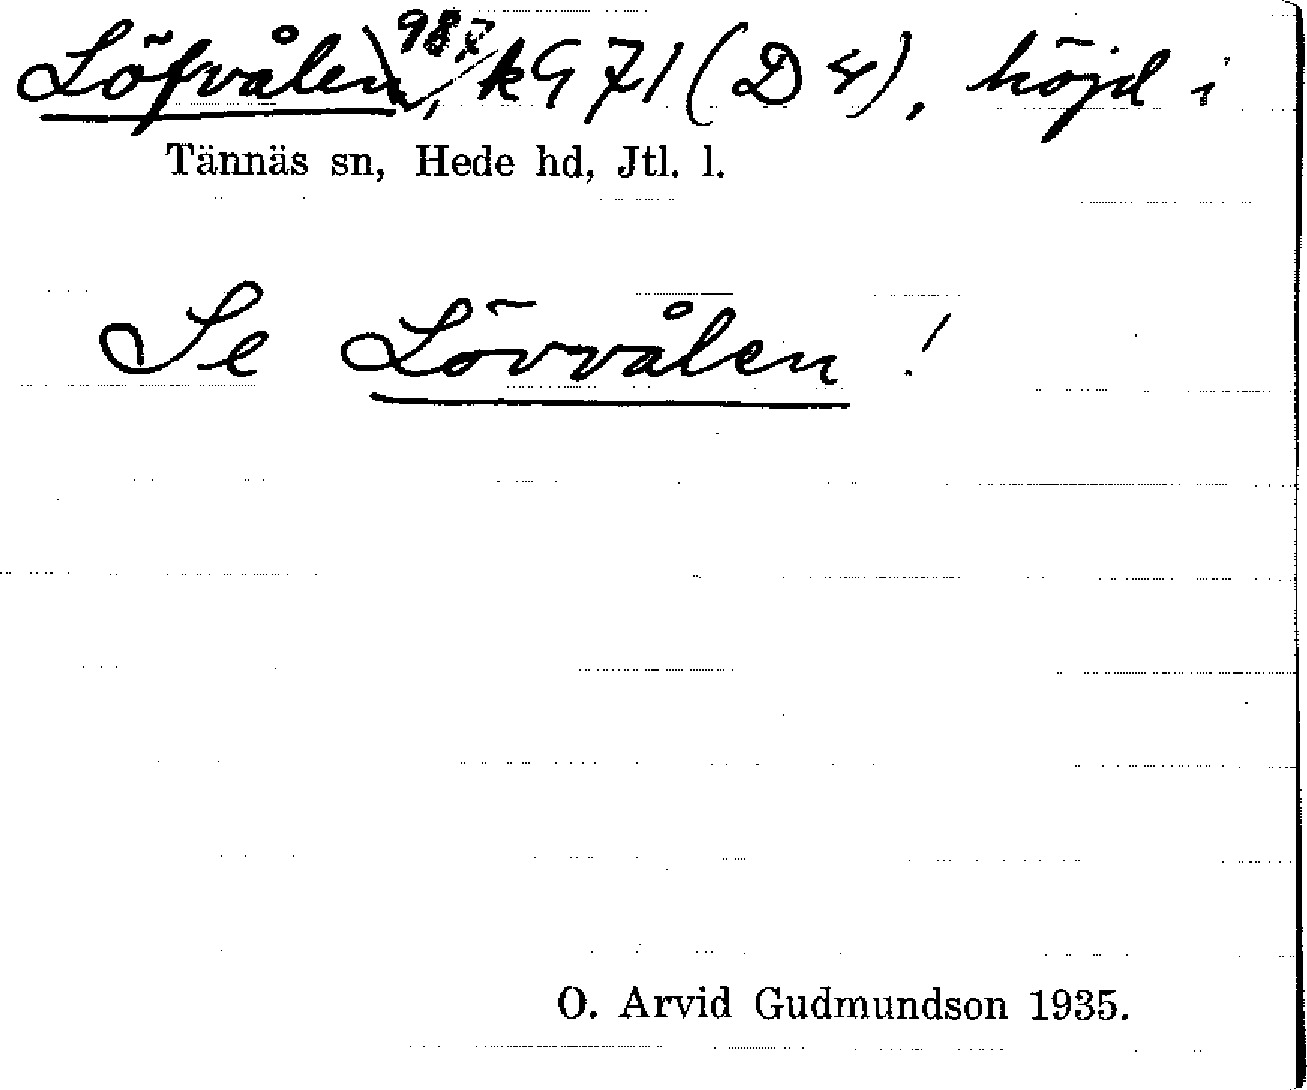 Löfvålen, 987, k G 71 (D ε), höjd i
Tännäs sn, Hede hd, Jtl. l.
Se Lövvålen!
O. Arvid Gudmundson 1935.